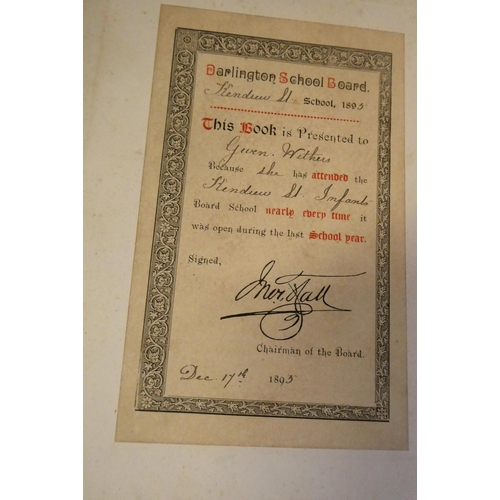 Darlington School Board.
Kendrew St. School, 1895
This Book is Presented to
Gwen. Withers
Because she has attended the
Kendrew St. Infants
Board School nearly every time it
was open during the last School year.
Signed,
Chairman of the Board.
Dec 17th 1895